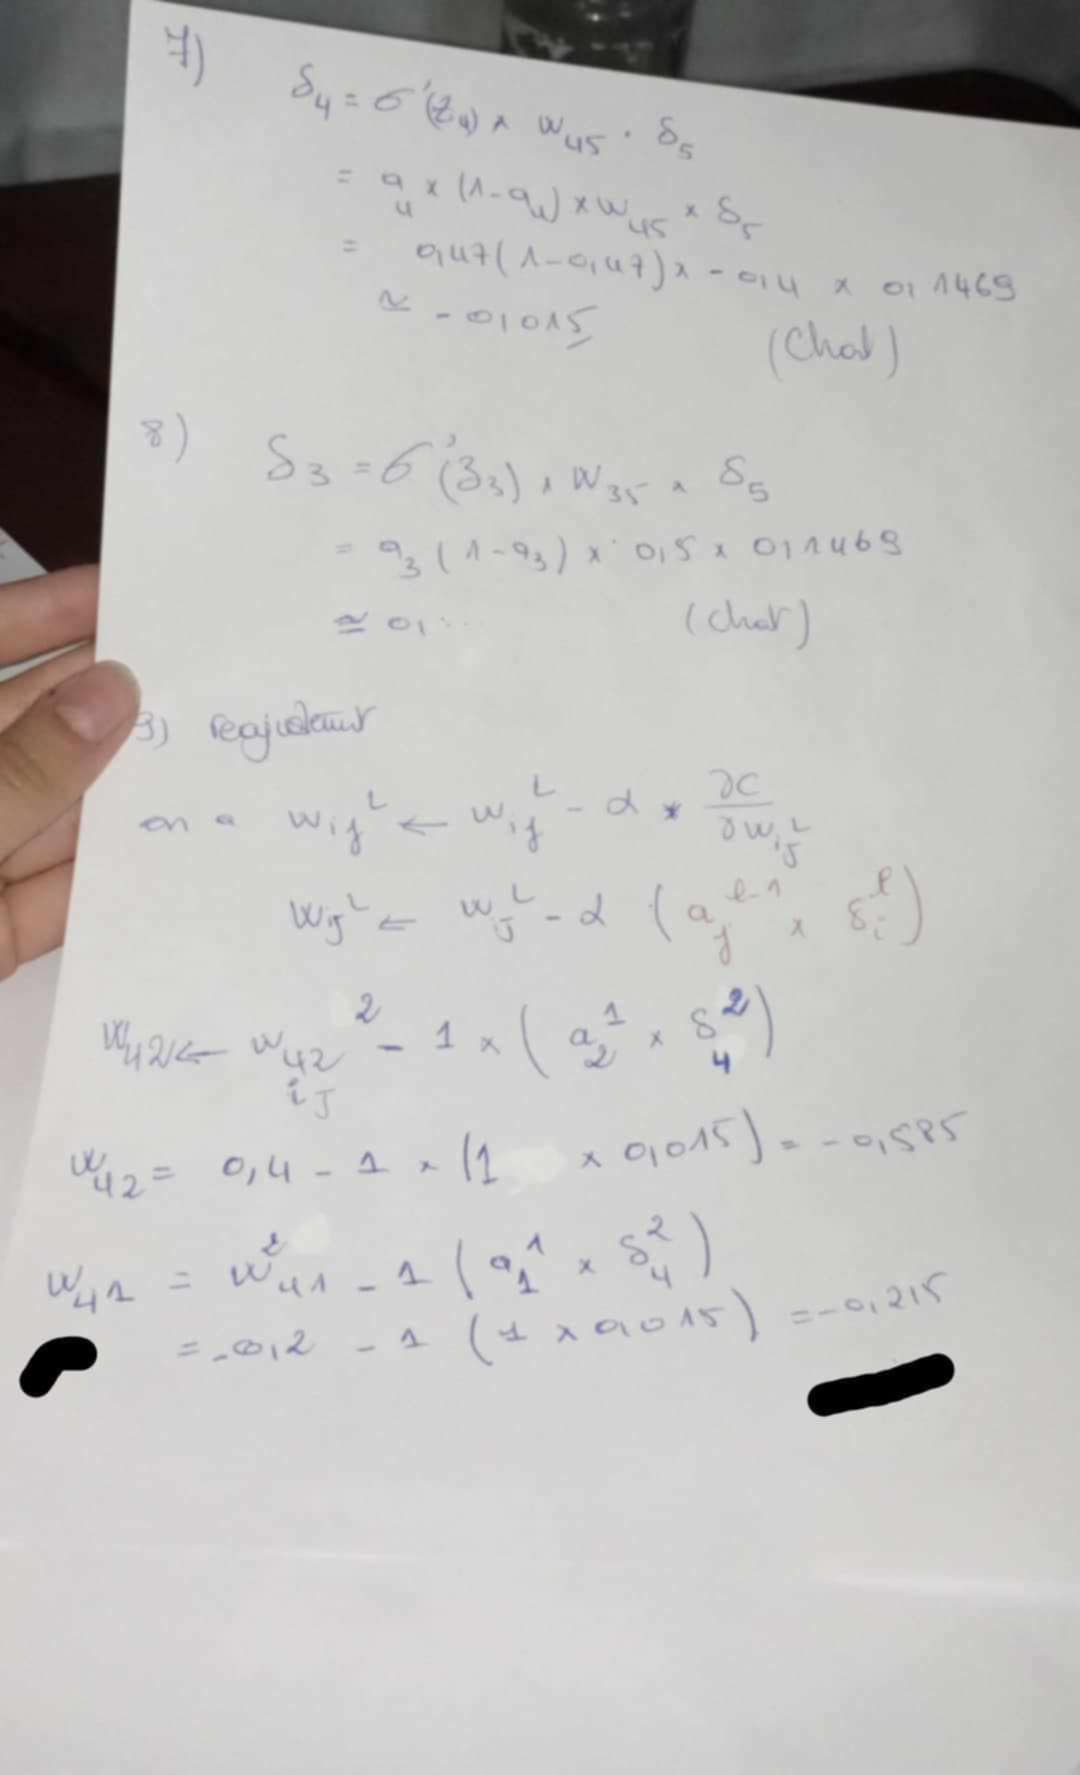 7)
δ₄ = σ'(z₄) × w₄₅ · δ₅
= a₄ × (1-a₄) × w₄₅ × δ₅
= 0,47(1-0,47) × -0,4 × 0,1469
≃ -0,015
(Chat)
8)
δ₃ = σ'(z₃) × w₃₅ × δ₅
= a₃ (1-a₃) × 0,5 × 0,1469
≃ 0,...
(Chat)
9)
on a wᵢⱼᴸ ← wᵢⱼᴸ - α * ∂C/∂wᵢⱼᴸ
wᵢⱼᴸ ← wᵢⱼᴸ - α (aⱼˡ⁻¹ × δᵢˡ)
w₄₂ ← w₄₂² - 1 × (a₂¹ × δ₄²)
iJ
w₄₂ = 0,4 - 1 × (1 × 0,015) = -0,585
w₄₁ = w₄₁² - 1 (a₁¹ × δ₄²)
= -0,2 - 1 (1 × 0,015) = -0,215